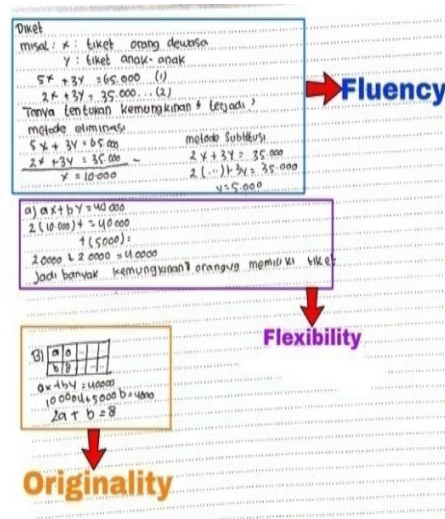 Diket
misal : x : tiket orang dewasa
y : tiket anak-anak
5x + 3y = 65.000 (1)
2x + 3y = 35.000 ... (2)
Tanya tentukan kemungkinan terjadi?
metode eliminasi
5x + 3y = 65.000
2x + 3y = 35.000 -
x = 10.000
metode Subtitusi
2x + 3y = 35.000
2 (...) + 3y = 35.000
y = 5.000
Fluency
a) ax + by = 40.000
2 (10.000) + = 40000
4 (5000) =
20000 + 20000 = 40000
Jadi banyak kemungkinan orang yg memiliki tiket
Flexibility
B) a 0
b 8
ax + by = 40000
2a + b = 8
Originality